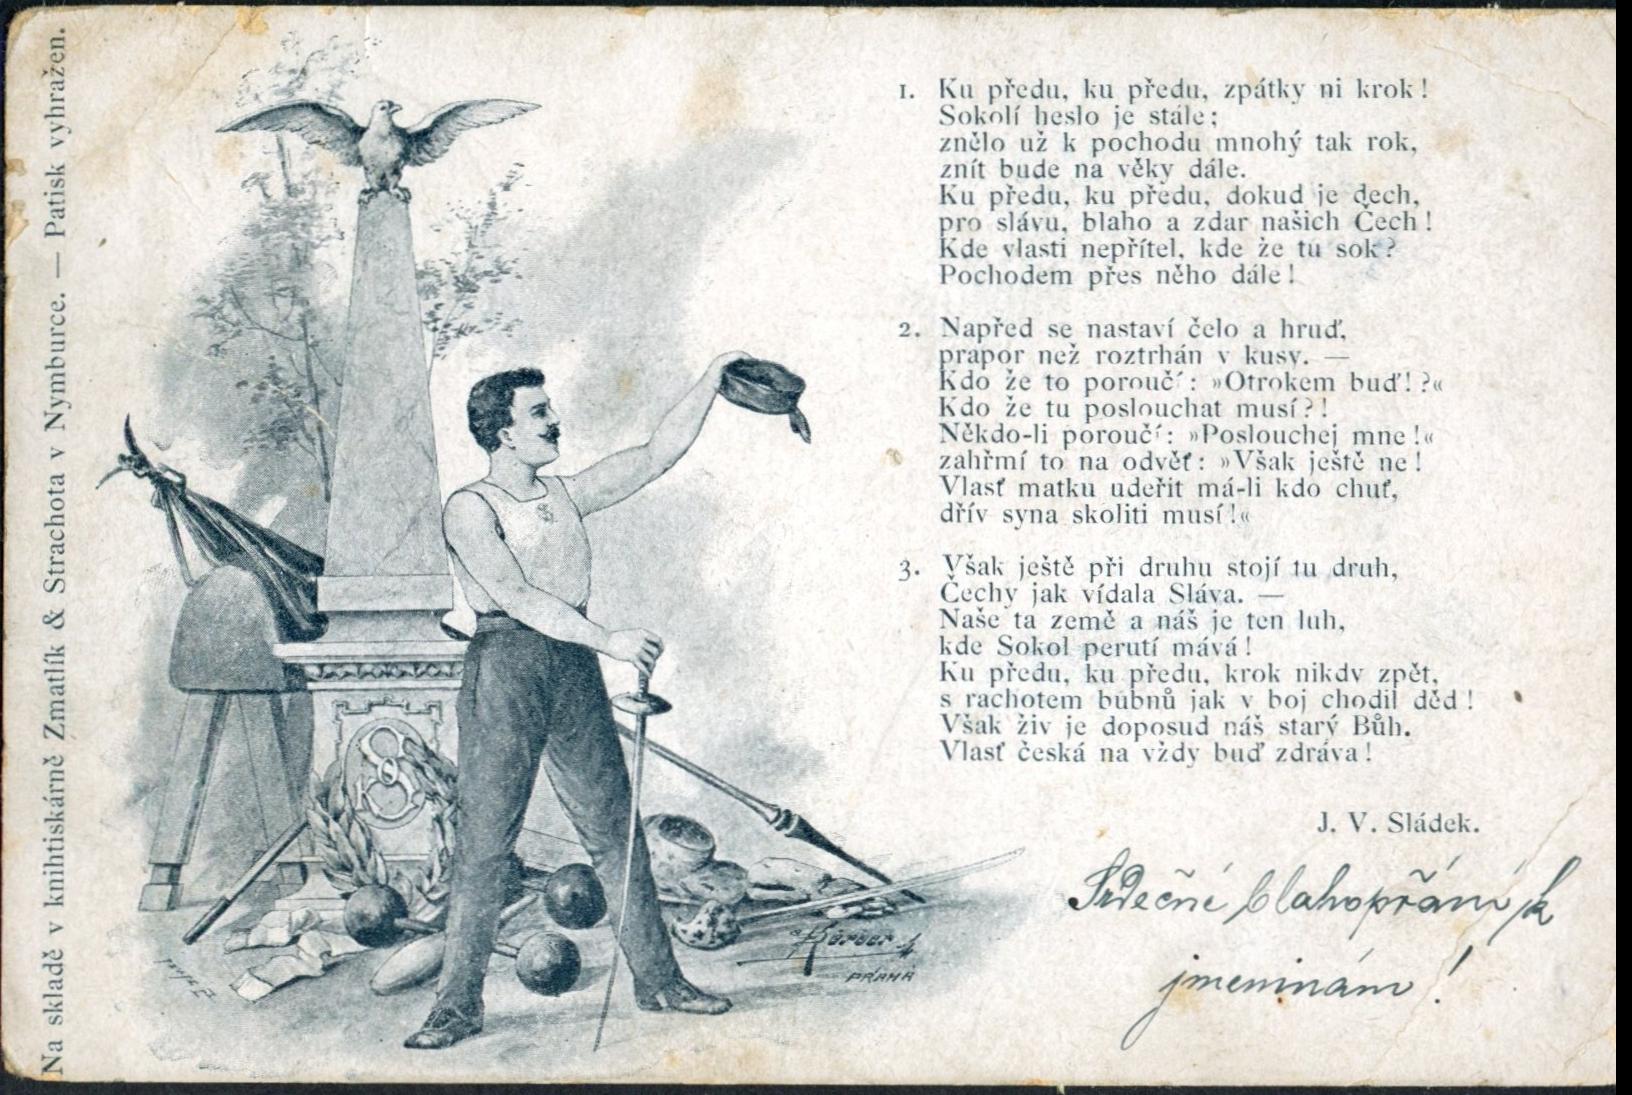 Na skladě v knihtiskárně Zmatlík & Strachota v Nymburce. — Patisk vyhražen.
1. Ku předu, ku předu, zpátky ni krok!
Sokolí heslo je stále;
znělo už k pochodu mnohý tak rok,
znít bude na věky dále.
Ku předu, ku předu, dokud je dech,
pro slávu, blaho a zdar našich Čech!
Kde vlasti nepřítel, kde že tu sok?
Pochodem přes něho dále!
2. Napřed se nastaví čelo a hruď,
prapor než roztrhán v kusy. —
Kdo že to poroučí: »Otrokem buď!?«
Kdo že tu poslouchat musí?!
Někdo-li poroučí: »Poslouchej mne!«
zahřmí to na odvěť: »Však ještě ne!
Vlasť matku udeřit má-li kdo chuť,
dřív syna skoliti musí!«
3. Však ještě při druhu stojí tu druh,
Čechy jak vídala Sláva. —
Naše ta země a náš je ten luh,
kde Sokol perutí mává!
Ku předu, ku předu, krok nikdy zpět,
s rachotem bubnů jak v boj chodil děd!
Však živ je doposud náš starý Bůh.
Vlasť česká na vždy buď zdráva!
J. V. Sládek.
Srdečné blahopřání k
jmeninám!
PRAHA